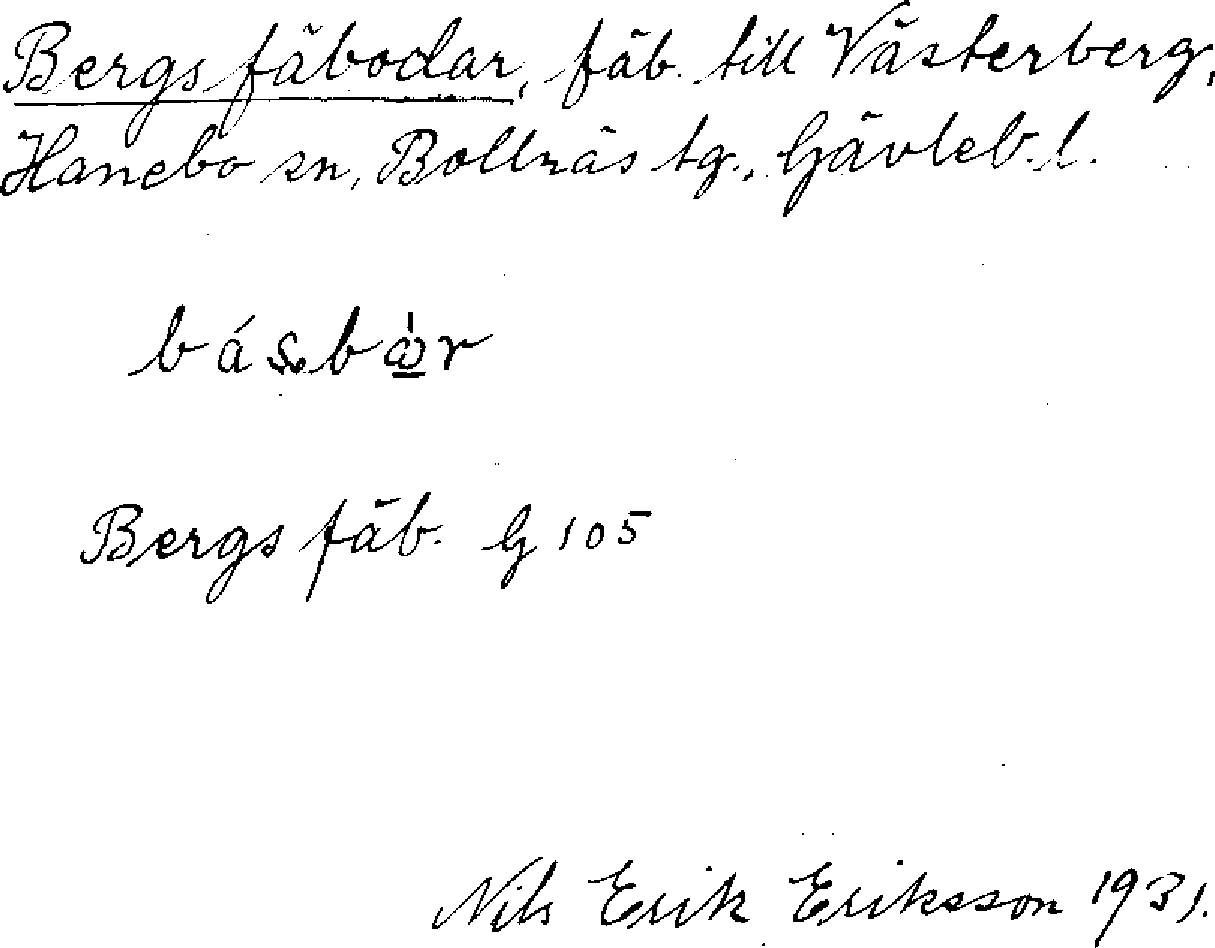 Bergs fäbodar, fäb. till Västerberg,
Hanebo sn, Bollnäs tg., Gävleb. l.
Bergs fäb. G 105
Nils Erik Eriksson 1931.